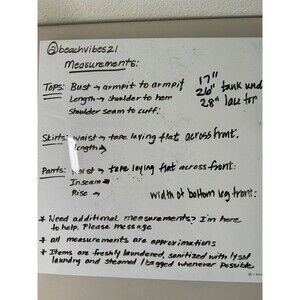 @beachvibes21
Measurements:
Tops: Bust → armpit to armpit
Length → shoulder to hem
Shoulder seam to cuff:
17"
26" tank
28"
Skirts: waist → tape laying flat across front.
Length →
Pants: waist → tape laying flat across front:
Inseam →
Rise →
width of bottom leg front:
* Need additional measurements? I'm here
to help. Please message
* all measurements are approximations
* Items are freshly laundered, sanitized with lysol
laundry and steamed / bagged whenever possible